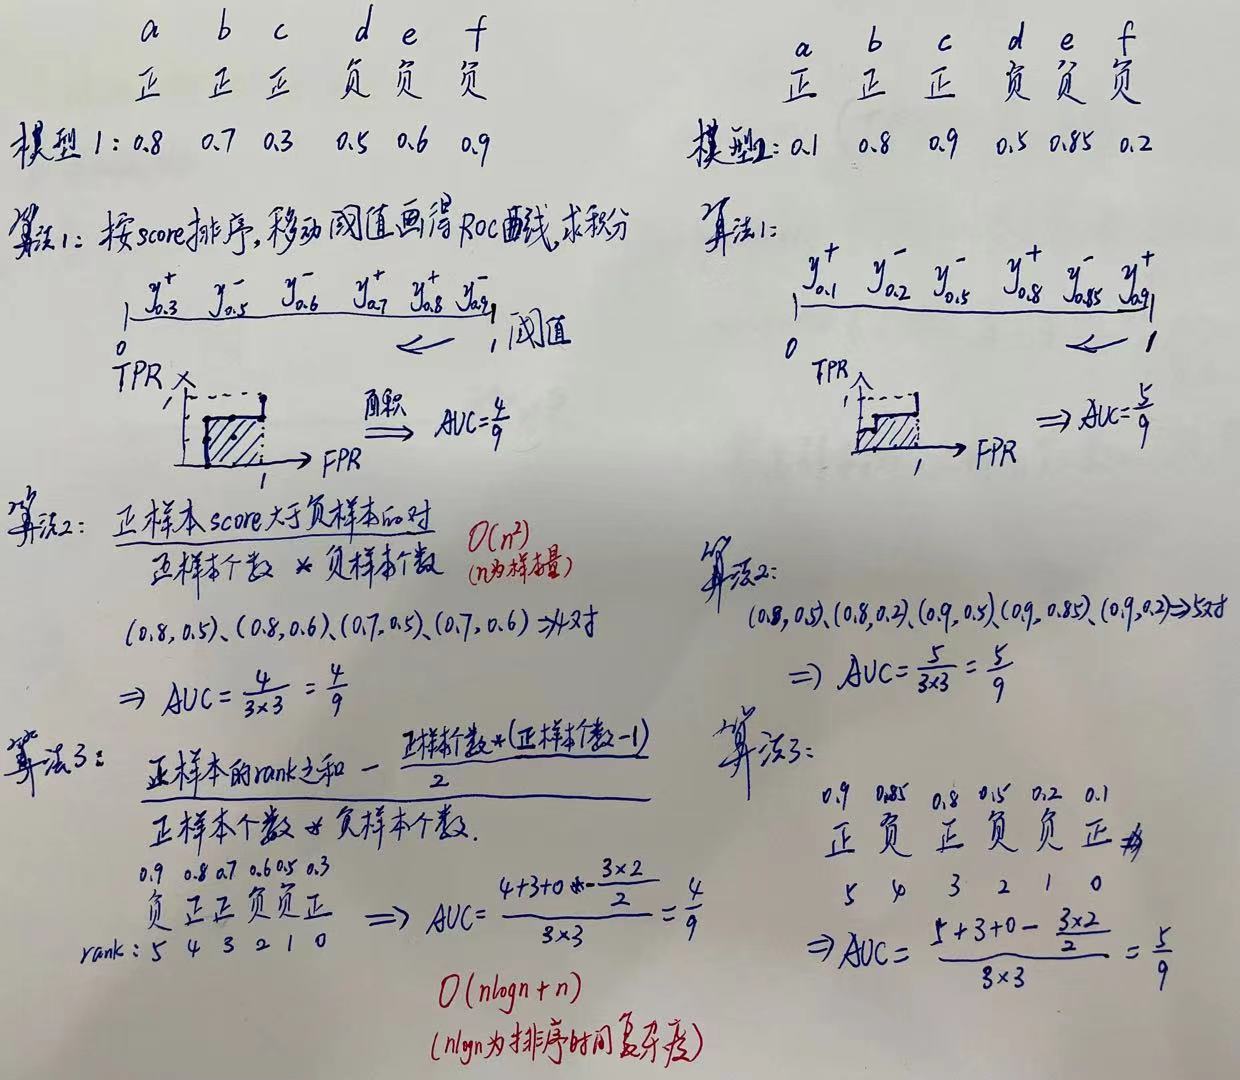 a b c d e f
正 正 正 负 负 负
模型1: 0.8 0.7 0.3 0.5 0.6 0.9
算法1: 按score排序,移动阈值画得ROC曲线,求积分
y⁺0.3 y⁻0.5 y⁻0.6 y⁺0.7 y⁺0.8 y⁻0.9
0 1 阈值
TPR
1
面积
⇒ AUC=4/9
1 FPR
算法2: 正样本score大于负样本的对
正样本个数 * 负样本个数
O(n²)
(n为样本量)
(0.8, 0.5)、(0.8, 0.6)、(0.7, 0.5)、(0.7, 0.6) ⇒4对
⇒ AUC = 4/(3×3) = 4/9
算法3: 正样本的rank之和 - 正样本个数*(正样本个数-1)/2
正样本个数 * 负样本个数.
0.9 0.8 0.7 0.6 0.5 0.3
负 正 正 负 负 正
rank: 5 4 3 2 1 0
⇒ AUC = (4+3+0 - (3×2)/2)/(3×3) = 4/9
O(nlogn + n)
(nlogn为排序时间复杂度)
a b c d e f
正 正 正 负 负 负
模型2: 0.1 0.8 0.9 0.5 0.85 0.2
算法1:
y⁺0.1 y⁻0.2 y⁻0.5 y⁺0.8 y⁻0.85 y⁺0.9
0 1
TPR
1
⇒ AUC=5/9
1 FPR
算法2:
(0.8, 0.5)、(0.8, 0.2)、(0.9, 0.5)、(0.9, 0.85)、(0.9, 0.2)⇒5对
⇒ AUC = 5/(3×3) = 5/9
算法3:
0.9 0.85 0.8 0.5 0.2 0.1
正 负 正 负 负 正
5 4 3 2 1 0
⇒ AUC = (5+3+0 - (3×2)/2)/(3×3) = 5/9